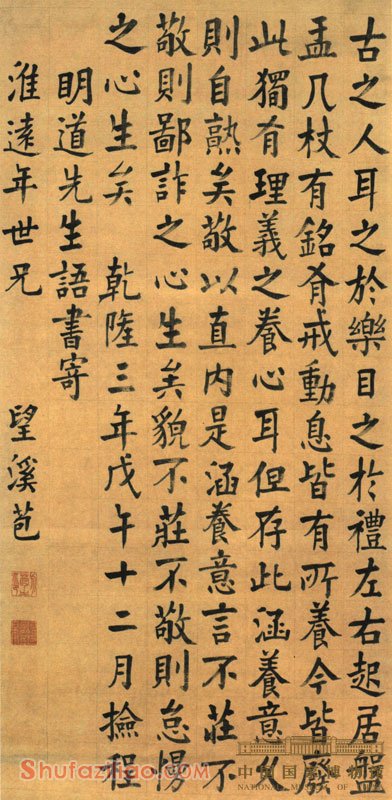 古之人耳之於樂目之於禮左右起居盤
盂几杖有銘有戒動息皆有所養今皆廢
此獨有理義之養心耳但存此涵養意久
則自熟矣敬以直内是涵養意言不莊不
敬則鄙詐之心生矣貌不莊不敬則怠惕
之心生矣 乾隆三年戊午十二月撿程
明道先生語書寄
淮遠年世兄 望溪苞
Shufaziliao.com
中国国家博物馆
NATIONAL MUSEUM OF